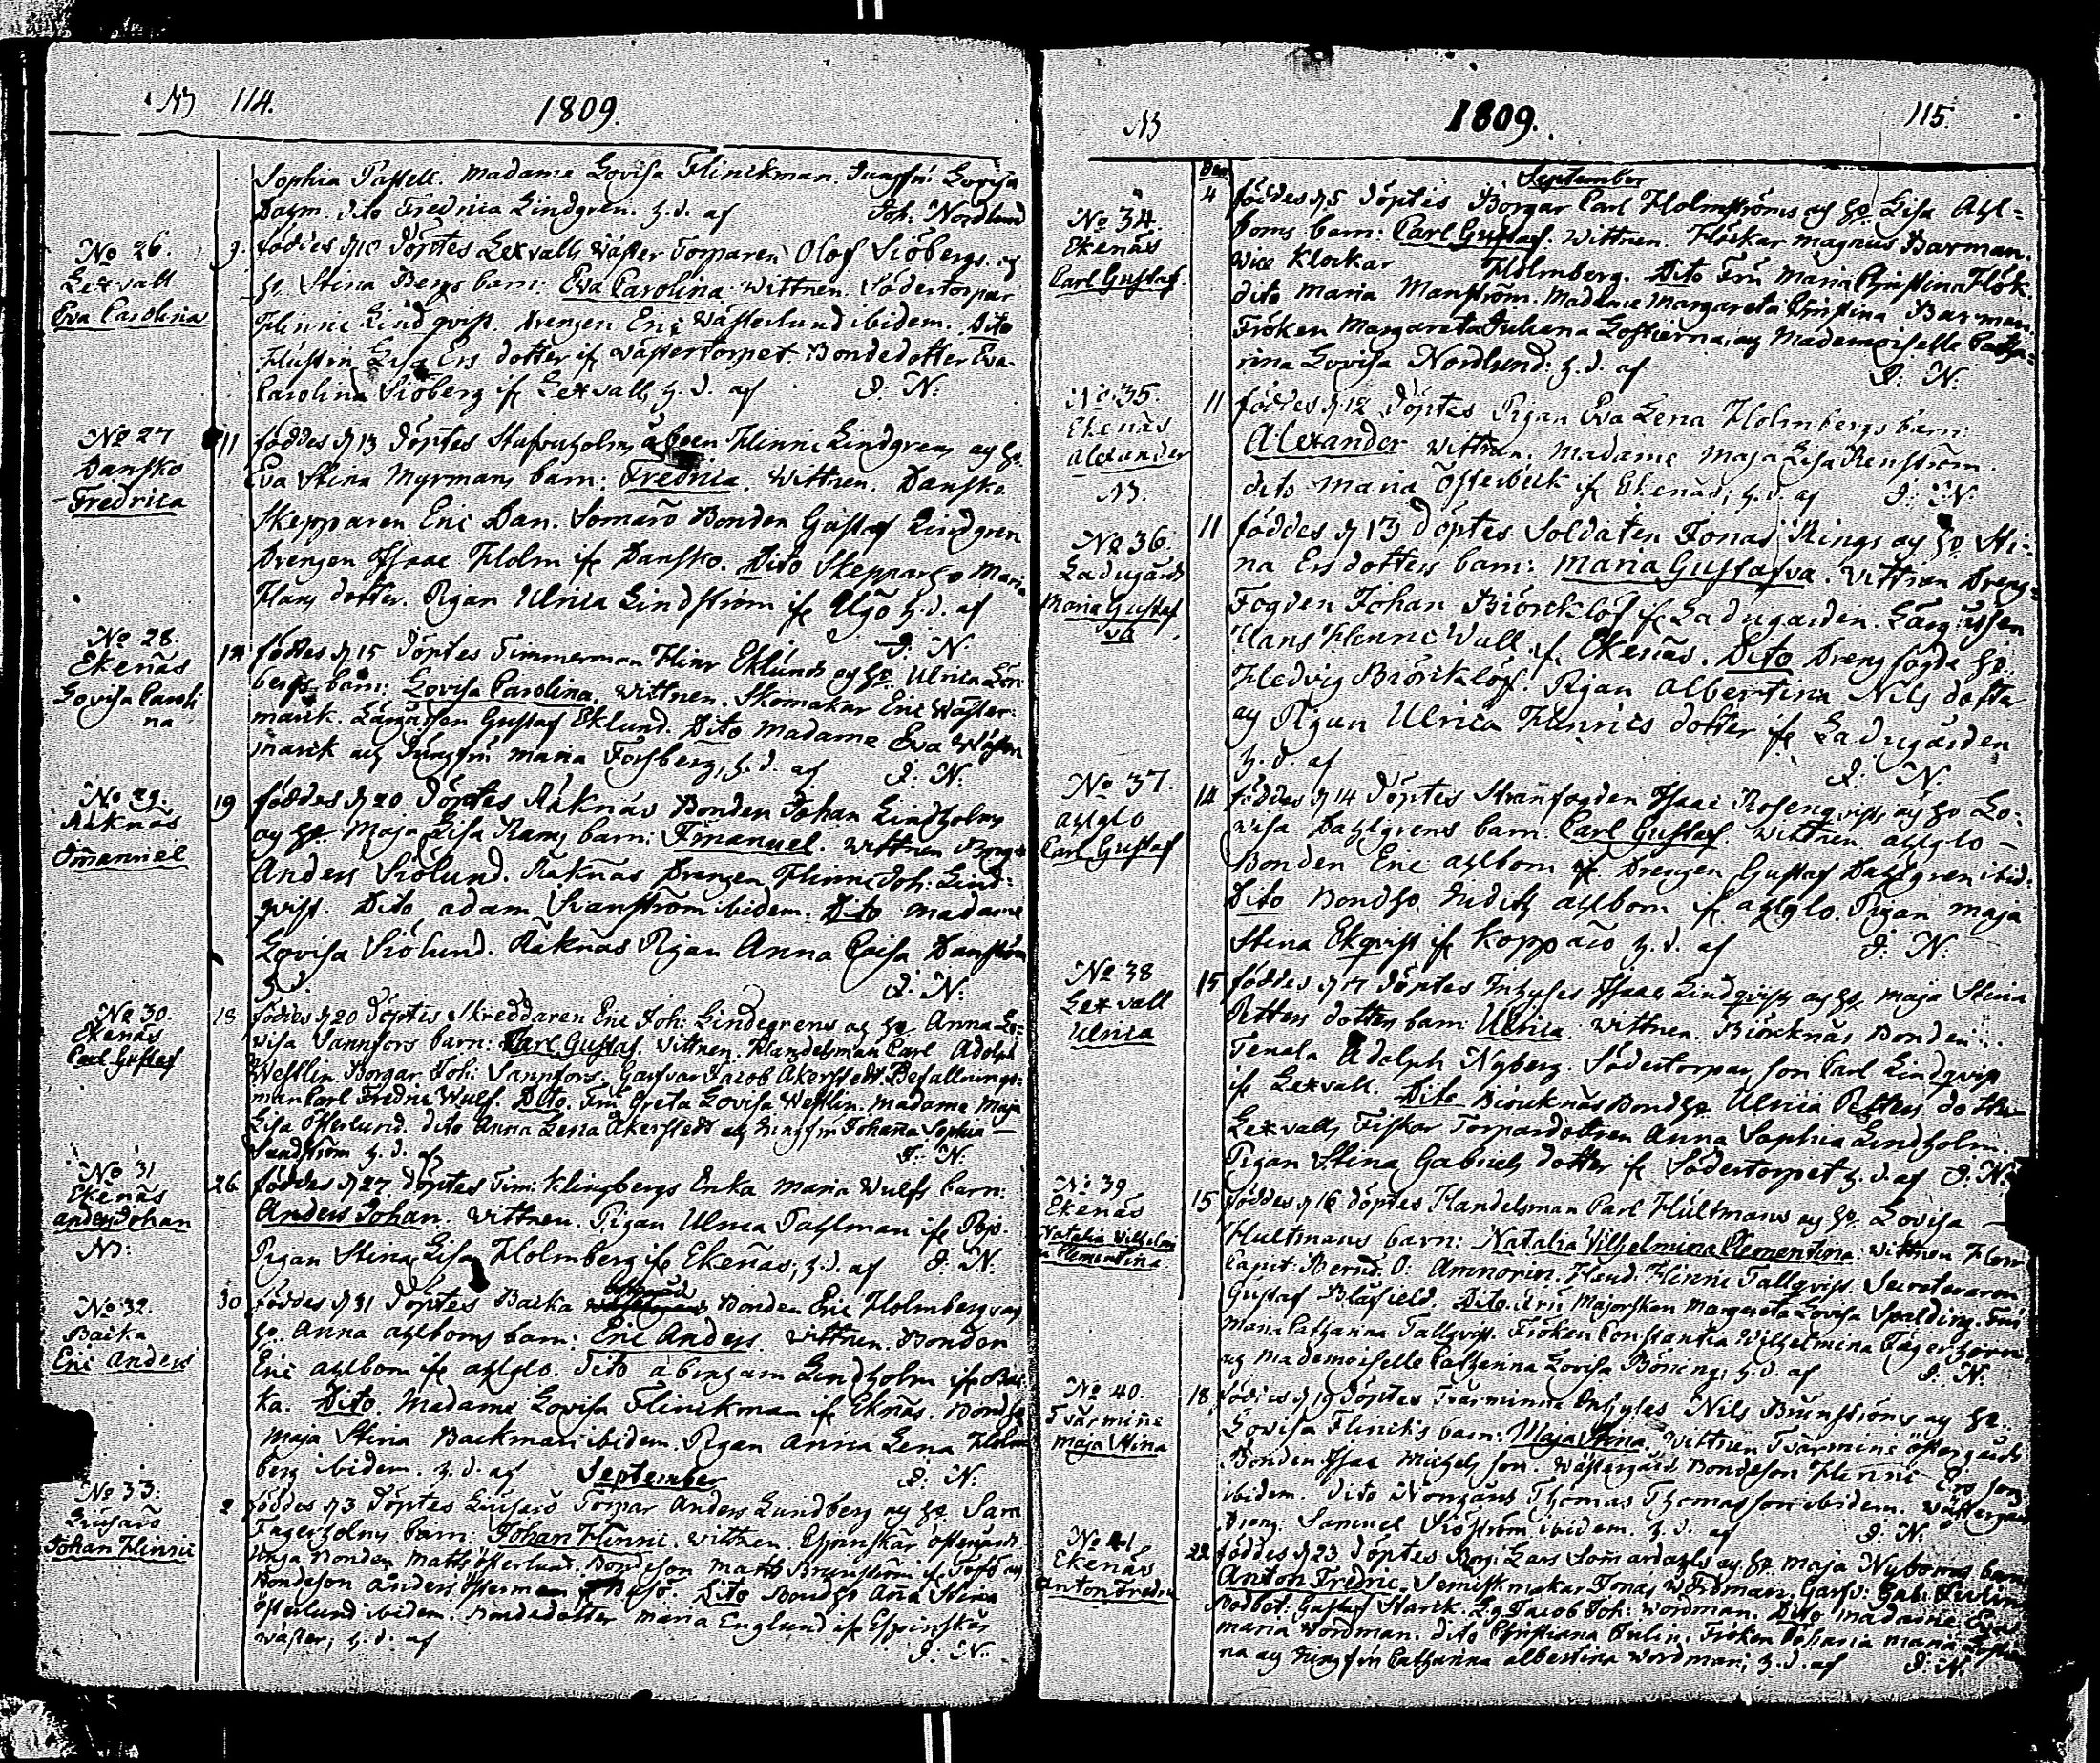 N3 114.
1809.
Sophia Passell. Madame Lovisa Flinckman. Jungfru Lovisa
Dahm. dito Fredrica Lindgren. h. d. af Joh: Nordlund
No 26.
Lexvall
Eva Carolina
9. föddes d 10 döptes Lexvalls Wäster Torparen Olof Siöbergs och
hu. Stina Bergs barn: Eva Carolina. Wittnen. Södertorpar
Hinric Lindqvist. Drengen Eric Wästerlund ibidem. Dito
Hustru Lisa Ers dotter if Wästertorpet Bondedotter Eva
Carolina Siöberg if Lexvall, h. d. af J: N:
No 27
Dansko
Fredrica
11 föddes d 13 döptes Hinric Lindgrens og hu.
Eva Stina Myrmans barn: Fredrica. Wittnen. Dansko
Skepparen Eric Dan. Somarö Bonden Gustaf Lindgren
Drengen Isaac Holm if Dansko. Dito Skepparhu Maria
Hans dotter. Pigan Ulrica Lindström if Algö h. d. af
J: N:
No 28.
Ekenäs
Lovisa Caroli
na
föddes d 15 döptes Timmerman Hinr Eklunds og hu. Ulrica Lön
bergs barn: Lovisa Carolina. Wittnen. Skomakar Eric Wäster-
marck. Gustaf Eklund. Dito Madame Eva Wäster
marck og Jungfru Maria Forsberg, h. d. af J: N:
No 29.
Råknäs
Emanuel
19 föddes d 20 döptes Råknäs Bonden Johan Lindholms
og hu. Maja Lisa Rams barn: Emanuel. Wittnen Borgar
Anders Siölund. Råknäs Drengen Hinric Joh: Lind-
qvist. Dito Adam Svanström ibidem. Dito Madame
Lovisa Siölund. Råknäs Pigan Anna Caisa Danström
h. d. J: N:
No 30.
Ekenäs
Carl Gustaf
18 föddes d 20 döptes Skreddaren Eric Joh: Lindegrens og hu. Anna Lo-
visa Sannfors barn: Carl Gustaf. Wittnen. Handelsman Carl Adolph
Westlin. Borgar. Joh: Sannfors. Garfvar Jacob Åkerstedt. Befallnings-
man Carl Fredric Wulf. Dito. Fru Greta Lovisa Westlin. Madame Maja
Lisa Österlund. dito Anna Lena Åkerstedt og Jungfru Johanna Sophia
Sundström h. d. af J: N:
No 31
Ekenäs
Anders Johan
N3:
26 föddes d 27 döptes Tim: Klingbergs Enka Maria Wulfs barn:
Anders Johan. Wittnen. Pigan Ulrica Tahlman if Pojo.
Pigan Stina Lisa Holmberg if Ekenäs, h. d. af J: N:
No 32.
Backa
Eric Anders
30 föddes d 31 döptes Backa Bonden Eric Holmbergs og
hu. Anna Ahlboms barn: Eric Anders. Wittnen. Bonden
Eric Ahlbom if Ahlglo. Dito Abraham Lindholm if Bac
ka. Dito. Madame Lovisa Flinckman if Eknäs. Bondhu
Maja Stina Backman ibidem. Pigan Anna Lena Holm
berg ibidem. h. d. af J: N:
September
No 33:
Johan Hinric
2 föddes d 3 döptes Torpar Anders Lundbergs og hu. Sara
Fagerholms barn: Johan Hinric. Wittnen. Espinskär östergårds
unga Bonden Matts Österlund. Bondeson Matts Brunström if og
Bondeson Anders Österman if Dito Bondhu Anna Stina
Österlund ibidem. Bondedotter Maria Englund if Espinskär
Wäster, h. d. af J: N:
N3
1809.
115.
Den
September
No 34.
Ekenäs
Carl Gustaf.
4 föddes d 5 döptes Borgar Carl Holmströms og hu. Lisa Ahl-
boms barn: Carl Gustaf. Wittnen. Klockar Magnus Barman.
Vice Klockar Holmberg. Dito Fru Maria Christina Höök
dito Maria Manström. Madame Margareta Christina Barman.
Fröken Margareta Juliana Lostierna, og Mademoiselle Catha-
rina Lovisa Nordlund. h. d. af J: N:
No 35.
Ekenäs
Alexander
N3.
11 föddes d 12 döptes Pigan Eva Lena Holmbergs barn:
Alexander. Wittnen. Madame Maja Lisa Renström.
dito Maria Österbäck if Ekenäs, h. d. af J: N:
No 36.
Ladugård
Maria Gustaf
va
11 föddes d 13 döptes Soldaten Jonas Rings og hu. Sti-
na Ersdotters barn: Maria Gustafva. Wittnen Dreng-
Fogden Johan Biörcklöf if Ladugården.
Hans Hinric Wall if Ekenäs. Dito Drengfogde hu.
Hedvig Biörcklöf. Pigan Albertina Nils dotter
og Pigan Ulrica Hinrics dotter if Ladugården
h. d. af J: N:
No 37.
Ahlglo
Carl Gustaf
14 föddes d 14 döptes Isaac Rosenqvists og hu Lo-
visa Dahlgrens barn: Carl Gustaf. Wittnen. Ahlglo
Bonden Eric Ahlbom if Drengen Gustaf Dahlgren ibid:
Dito Bondhu Ahlbom if Ahlglo. Pigan Maja
Stina Ekqvist if Koppaiö h. d. af J: N:
No 38
Lexvall
Ulrica
15 föddes d 17 döptes Inhyses Isaac Lindqvists og hu. Maja Stina
Petters dotters barn: Ulrica. Wittnen. Biörcknäs Bonden
Tenala Adolph Nyberg. Södertorpar son Carl Lindqvist
if Lexvall. Dito Biörcknäs Bondhu. Ulrica Petters dotter
Lexvalls Fiskar Torpardottren Anna Sophia Lindholm.
Pigan Stina Gabriels dotter if Södertorpet h. d. af J: N:
No 39
Ekenäs
Natalia Vilhelmi
na Clementina
15 föddes d 16 döptes Handelsman Carl Hultmans og hu. Lovisa
Hultmans barn: Natalia Vilhelmina Clementina. Wittnen Herr
Capit: Bernd. O: Amnorin. Hand: Hinric Tallqvist. Secreteraren
Gustaf Blåfield. Dito. Fru Majorskan Margareta Lovisa Spalding. Fru
Maria Catharina Tallqvist. Fröken Constantia Wilhelmina Fägerhorn
og Mademoiselle Catharina Lovisa Böning, h. d. af J: N:
No 40.
Tvärminne
Maja Stina
18 föddes d 19 döptes Tvärminne Inhyses Nils Brunströms og hu.
Lovisa Flincks barn: Maja Stina. Wittnen Tvärminne östergårds
Bonden Isaac Michels son. Wästergårds Bondeson Hinric Ers son
ibidem. Dito Thomas Thomasson ibidem. Wästergårds
Dreng Samuel Siöström ibidem. h. d. af J: N:
No 41.
Ekenäs
Anton Fredric
22 föddes d 23 döptes Borg: Lars og hu. Maja Nyboms barn
Anton Fredric. Semiskmakar Jonas Wördman, Garfv: Gab:
Gustaf Starck. Jacob Joh: Wordman. Dito Madame Eva
Maria Wordman. dito Christiana Fröken Johanna Maria
na og Jungfru Catharina Albertina Wordman, h. d. af J: N: